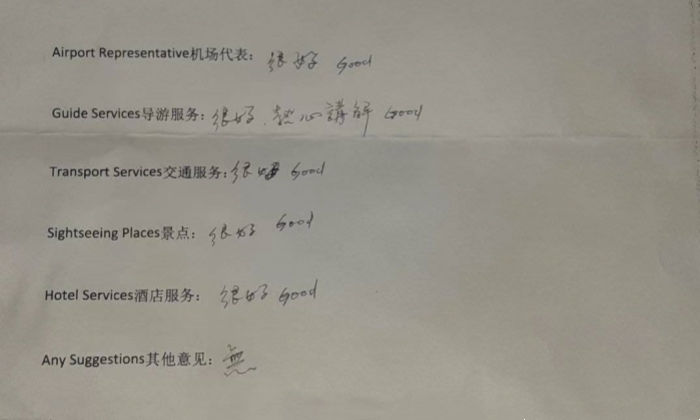 Airport Representative机场代表：很好 Good
Guide Services导游服务：很好、热心講解 Good
Transport Services交通服务：很好 Good
Sightseeing Places景点：很好 Good
Hotel Services酒店服务：很好 Good
Any Suggestions其他意见：無